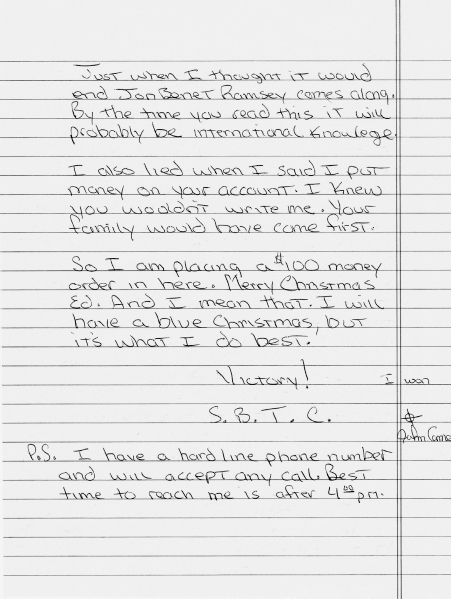 Just when I thought it would
end JonBenet Ramsey comes along.
By the time you read this it will
probably be international knowlege.
I also lied when I said I put
money on your account. I knew
you wouldn't write me. Your
family would have come first.
So I am placing a $100 money
order in here. Merry Christmas
Ed. And I mean that. I will
have a blue Christmas, but
it's what I do best.
Victory! I won
S.B.T.C.
P.S. I have a hard line phone number
and will accept any call. Best
time to reach me is after 4:00 pm.